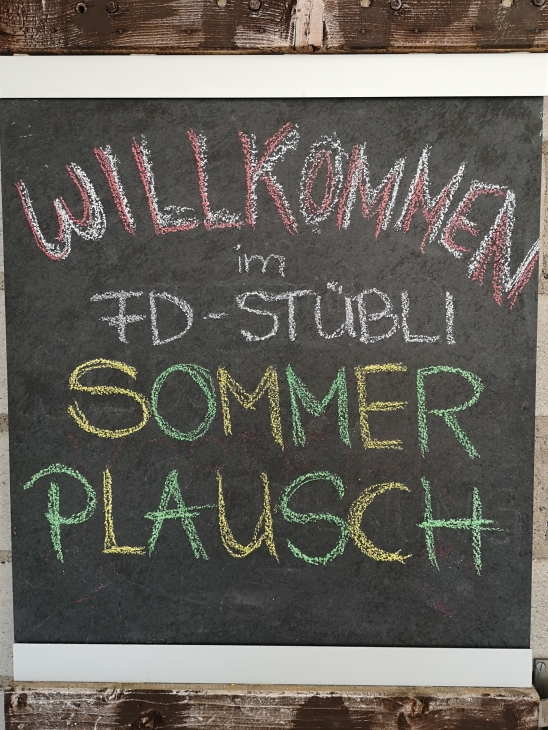 WILLKOMMEN
im
FD-STÜBLI
SOMMER
PLAUSCH